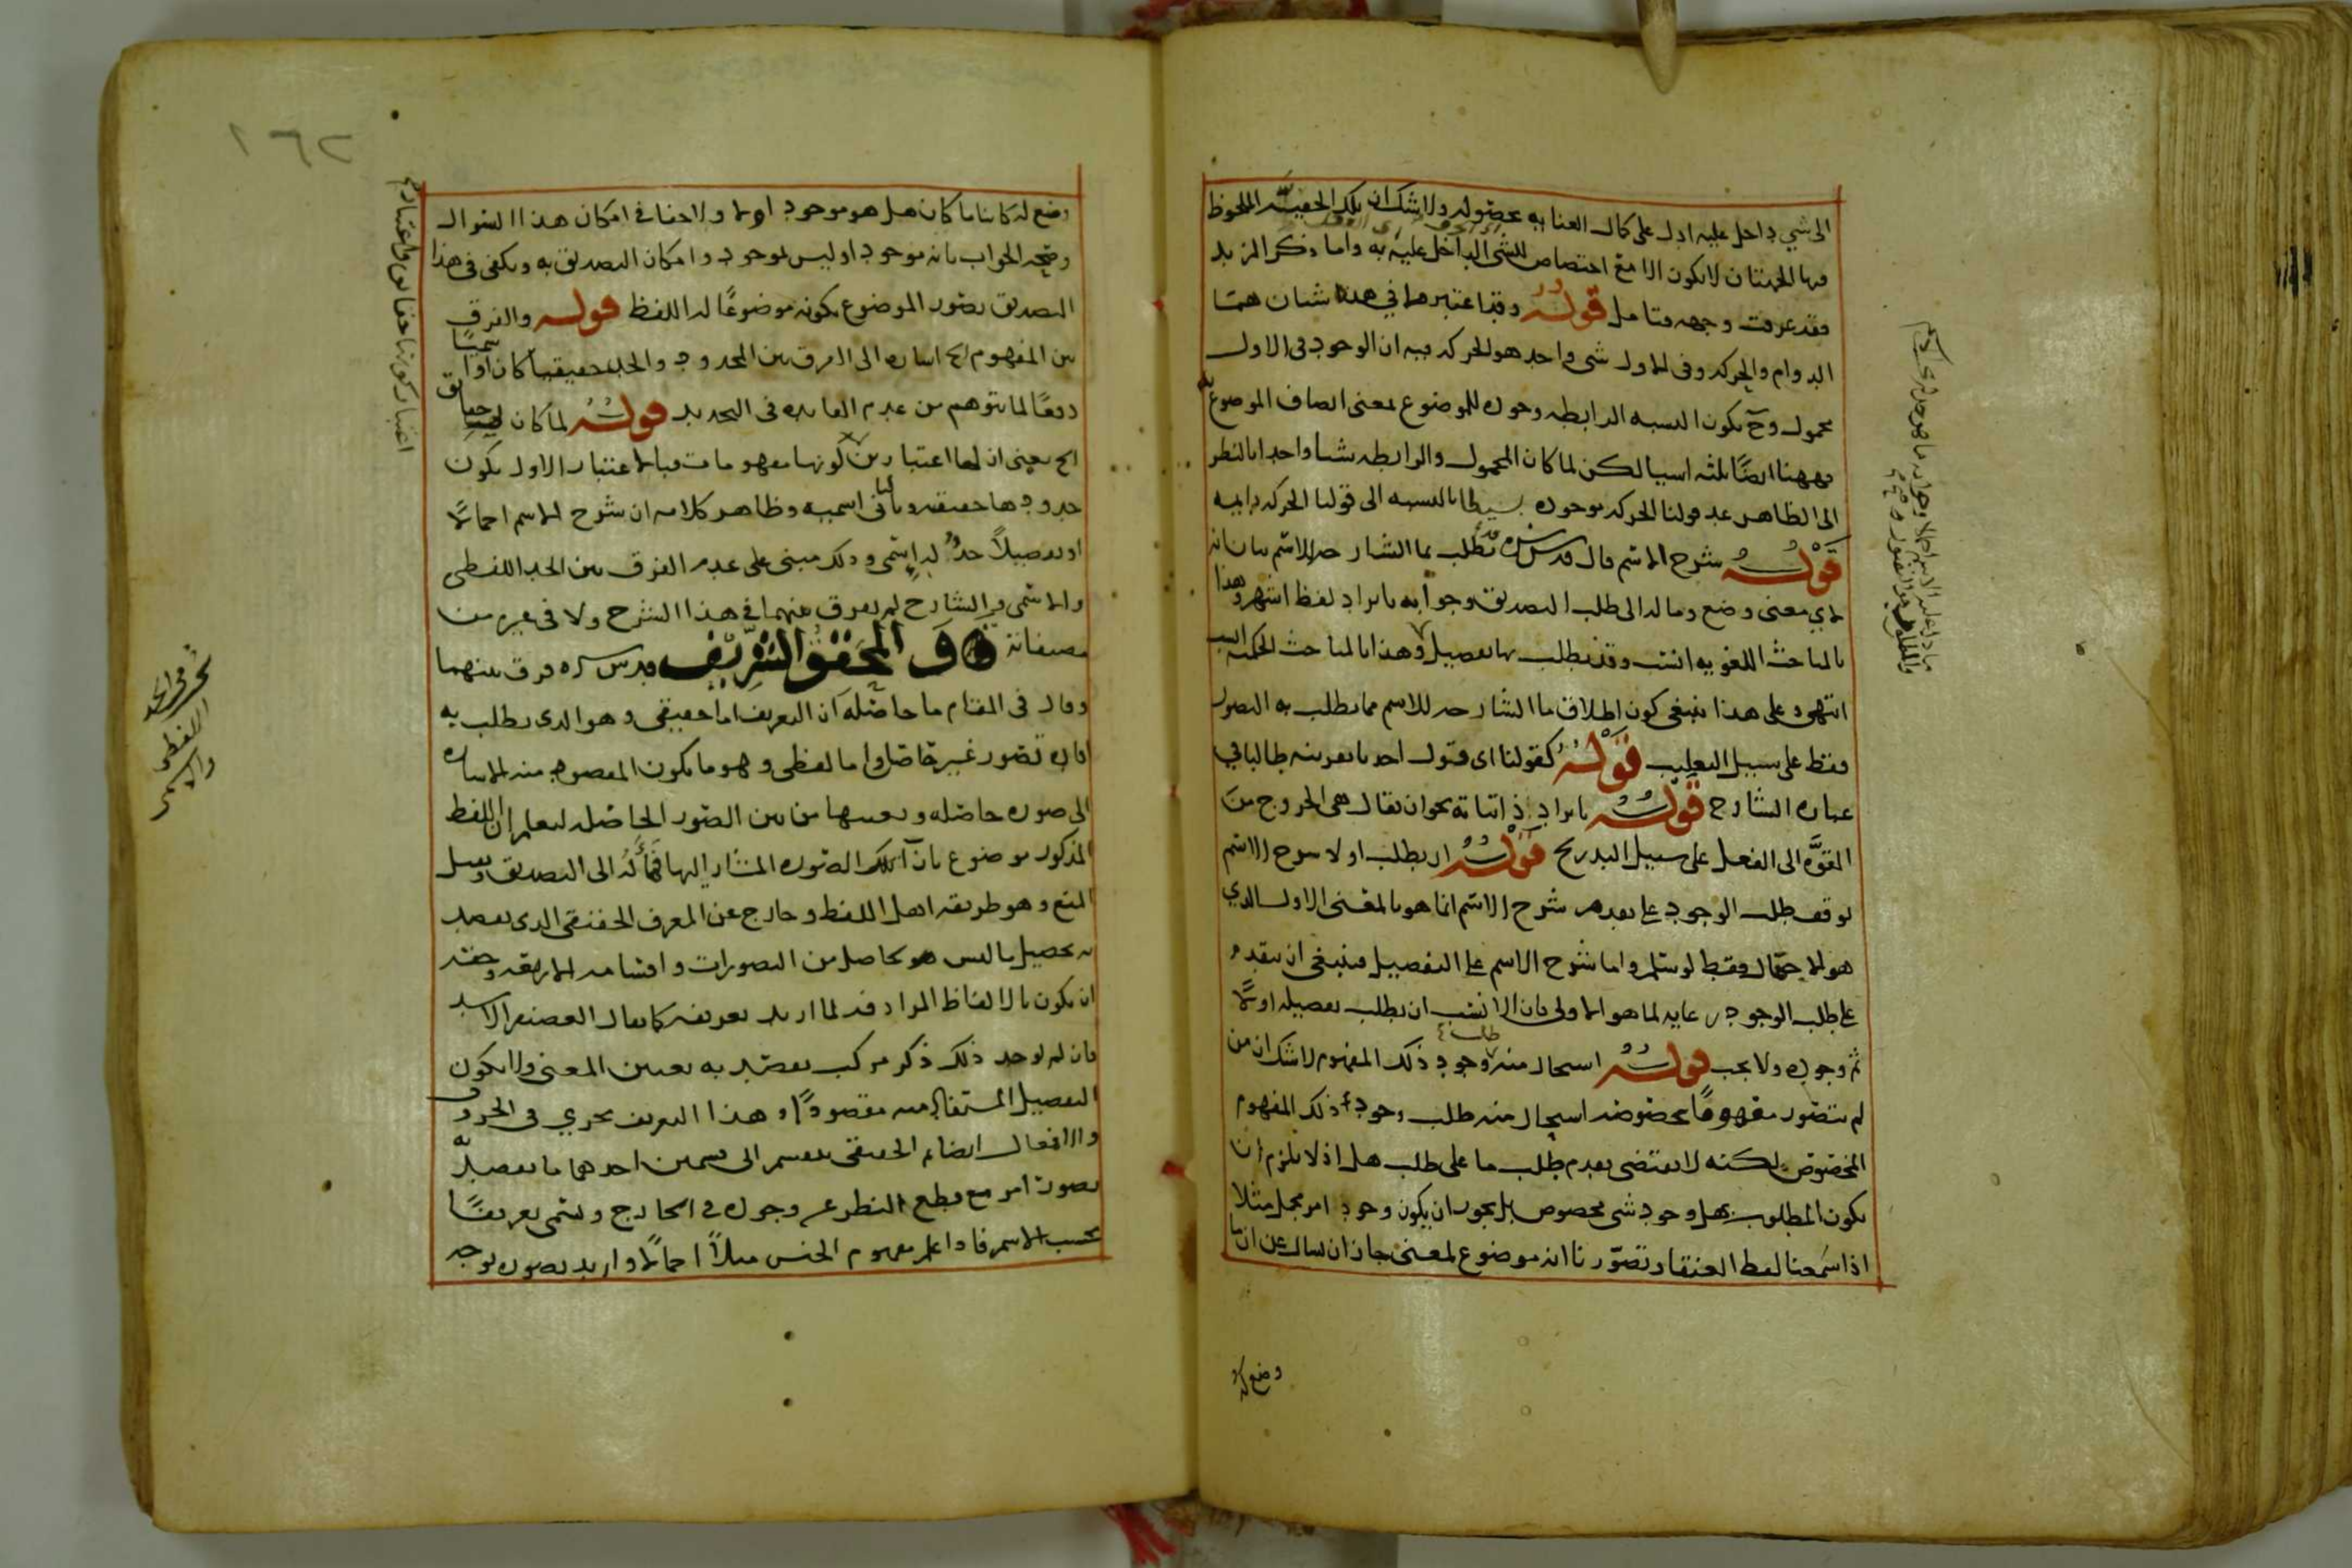 الى شي داخل عليه ادل على كمال العناية بحضوله ولا شك ان تلك الحقيقة الملحوظ
فيها الجهتان لا يكون الا مع اختصاص للشي الداخل عليه به واما ذكر المزيد
فقد عرفت وجهه فتامل قوله وقد اعتبر ها في هذه شيان هما
الدوام والحركه وفي الاول شي واحد هو الحركه فيه ان الوجود في الاول
محمول وح يكون النسبه الرابطه وجوده للموضوع بمعنى اتصاف الموضوع
فههنا ايضا ثلثه اسيا لكن لما كان المحمول والرابطه شيا واحدا بالنظر
الى الظاهر عد قولنا الحركه موجوده بسيطا بالنسبه الى قولنا الحركه دايمه
قوله شرح الاسم قال قدس سره قد تطلب بما الشارحه للاسم بيان انه
لاي معنى وضع وماله الى طلب التصديق وجوابه بايراد لفظ اشهر وهذا
بالمباحث اللغويه انسب وقد يطلب بها تفصيل وهذا بالمباحث الحكميه انسب
انتهى وعلى هذا ينبغي كون اطلاق ما الشارحه للاسم مما يطلب به التصور
فقط على سبيل التغليب قوله كقولنا اى قول احد ما تعرفنه طالبا في
عباره الشارح قوله بايراد ذاتياته نحو ان يقال هي الخروج من
القوه الى الفعل على سبيل التدريج قوله ان يطلب اولا شرح الاسم
توقف طلب الوجود على تقدم شرح الاسم انما هو بالمعنى الاول الذي
هو الاجمال فقط لو سلم واما شرح الاسم على التفصيل فينبغي ان يتقدم
على طلب الوجود رعايه لما هو الاولى فان الانسب ان يطلب تفصيله اولا
ثم وجوده ولا يجب قوله استحال منه وجود ذلك المفهوم لا شك ان من
طلب
لم يتصور مفهوما بخصوصه استحال منه طلب وجود ذلك المفهوم
المخصوص لكنه لا يقتضى تقدم طلب ما على طلب هل اذ لا يلزم ان
يكون المطلوب بهل وجود شي مخصوص بل يجوز ان يكون وجود امر مجمل مثلا
اذا سمعنا لفظ العنقا وتصورنا انه موضوع لمعنى جاز ان نسال عن ان ما
وضع له
١٦٢
وضع له كاينا ما كان هل هو موجود اولا ولا خفا في امكان هذا السوال
وصحه الجواب بانه موجود او ليس بموجود وامكان التصديق به ويكفى فى هذا
التصديق تصور الموضوع بكونه موضوعا له اللفظ قوله والفرق
بين المفهوم اى اشاره الى الفرق بين المحدود والحد حقيقيا كان او اسميا
دفعا لما يتوهم من عدم الفايده في التحديد قوله لما كان حقايق
الخ يعنى ان لها اعتبارين كونها مفهومات فبالاعتبار الاول يكون
حدودها حقيقه وبالثاني اسميه وظاهر كلامه ان شرح الاسم اجمالا
او تفصيلا حد له اسمى وذلك مبنى على عدم الفرق بين الحد اللفظى
والاسمى والشارح لم يفرق بينهما في هذا الشرح ولا في غيره من
مصنفاته والمحقق الشريف قدس سره فرق بينهما
وقال فى المقام ما حاصله ان التعريف اما حقيقي وهو الذى يطلب به
افاده تصور غير حاصل واما لفظى وهو ما يكون المقصود منه الاشاره
الى صوره حاصله وتعيينها من بين الصور الحاصله ليعلم ان اللفظ
المذكور موضوع بازآ تلك الصوره المشار اليها فمآله الى التصديق ويقبل
المنع وهو طريقه اهل اللغه وخارج عن المعرف الحقيقي الذى يقصد
به تحصيل ما ليس هو بحاصل من التصورات واقسامه الاربعه وحقه
ان يكون بالالفاظ المرادفه لما اريد تعريفه كما يقال الغضنفر الاسد
فان لم يوجد ذلك ذكر مركب يقصد به تعيين المعنى ولا يكون
التفصيل المستفاد منه مقصودا وهذا التعريف يجري في الحروف
والافعال ايضا ثم الحقيقي ينقسم الى قسمين احدهما ما يقصد به
تصور امر مع قطع النظر عن وجوده في الخارج ويسمى تعريفا
بحسب الاسم فاذا علم مفهوم الجنس مثلا اجمالا واريد تصوره بوجه
اعتبار كونها حقايق واعتبار
تحرير في الحد
اللفظى
والاسمى